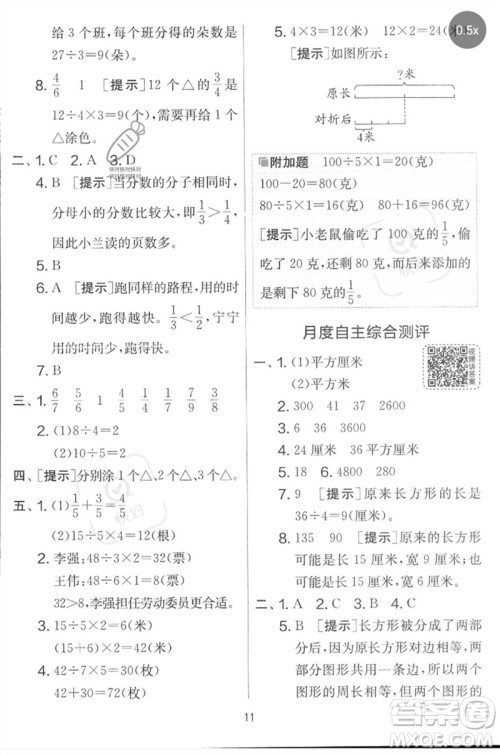 给 3 个班,每个班分得的朵数是
27÷3=9(朵)。
8. 4/6 1 [提示]△的总个数的 3/4 是
12÷4×3=9(个),已涂色 8 个
△,需要再给 1 个△涂色。
二、1. C 2. A 3. D
4. B [提示]当分数的分子相同时,
分母小的分数比较大,即 1/3 > 1/4,
因此小兰读的页数多。
5. B
6. A [提示]跑同样的路程,用的时
间越少,跑得越快。1/3 < 1/2,宁宁
用的时间少,跑得快。
三、1. 6/7 6/6 1/6 1/7 1 7/8 4/9
2. (1)8÷4=2
(2)10÷5×4=8
四、[提示]分别涂 1 个△、3 个△。
五、1. (1)1/5+3/5=4/5
(2)15÷5×4=12(根)
2. 李强:48÷3×2=32(票)
王伟:48÷6×1=8(票)
32>8,李强担任劳动委员更合适。
3. 15÷5×2=6(米)
(15+6)×2=42(米)
4. 42÷7×5=30(枚)
42+30=72(枚)
5. 4×3=12(米) 12×2=24(米)
[提示]如图所示:
?米
原长
对折后
4米
附加题 100÷5×1=20(克)
100-20=80(克)
80÷5×1=16(克) 80+16=96(克)
[提示]小老鼠偷吃了 100 克的 1/5,偷
吃了 20 克,还剩 80 克,而后来添加了
剩下 80 克的 1/5。
月度自主综合测评
一、1. (1)平方厘米
(2)平方米
2. 300 41 37 3600
3. 24 平方厘米 36 平方厘米
4. 18 6 5. 16 6. 4800 280
7. 9 [提示]原来长方形的长是
36÷4=9(厘米)。
8. 135 90 [提示]原来的长方形
可能是长 15 厘米,宽 9 厘米;也
可能是长 18 厘米,宽 6 厘米。
二、1. A 2. C 3. B 4. A
5. B [提示]长方形被分成了两部
分,原来长方形对边相等,两部分
图形共用一条边,所以这两部分
图形的周长是相等的,但图形的
11
0.5x
答案圈